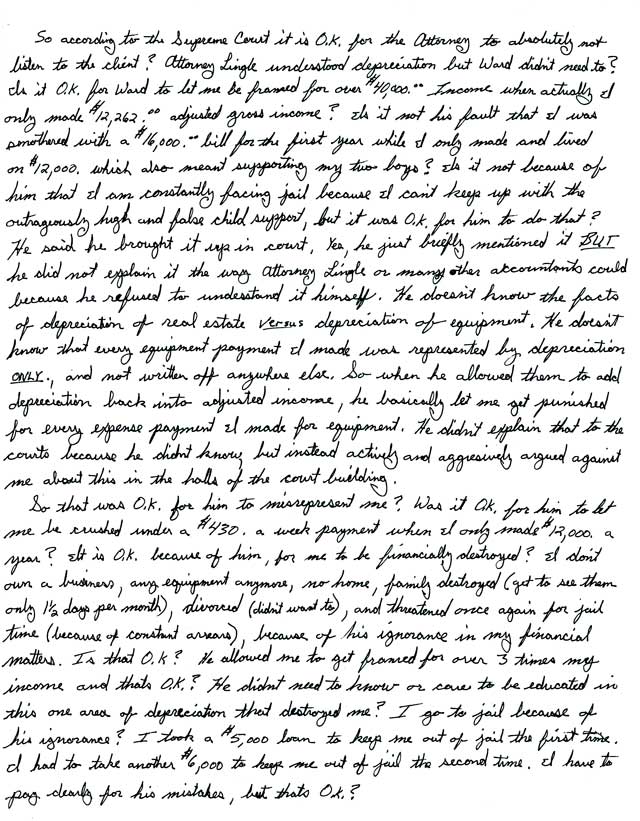 So according to the Supreme Court it is O.K. for the Attorney to absolutely not
listen to the client? Attorney Lingle understood depreciation but Ward didn't need to?
Is it O.K. for Ward to let me be framed for over $40,000.00 Income when actually I
only made $12,262.00 adjusted gross income? Is it not his fault that I was
smothered with a $16,000.00 bill for the first year while I only made and lived
on $12,000. which also meant supporting my two boys? Is it not because of
him that I am constantly facing jail because I can't keep up with the
outrageously high and false child support, but it was O.K. for him to do that?
He said he brought it up in court, Yea, he just briefly mentioned it BUT
he did not explain it the way Attorney Lingle or many other accountants could
because he refused to understand it himself. He doesn't know the facts
of depreciation of real estate versus depreciation of equipment. He doesn't
know that every equipment payment I made was represented by depreciation
ONLY., and not written off anywhere else. So when he allowed them to add
depreciation back into adjusted income, he basically let me get punished
for every expense payment I made for equipment. He didn't explain that to the
courts because he didn't know, but instead actively and aggresively argued against
me about this in the halls of the court building.
So that was O.K. for him to misrepresent me? Was it O.K. for him to let
me be crushed under a $430. a week payment when I only made $12,000. a
year? It is O.K. because of him, for me to be financially destroyed? I don't
own a business, any equipment anymore, no home, family destroyed (get to see them
only 1½ days per month), divorced (didn't want to), and threatened once again for jail
time (because of constant arrears), because of his ignorance in my financial
matters. Is that O.K? He allowed me to get framed for over 3 times my
income and thats O.K.? He didn't need to know or care to be educated in
this one area of depreciation that destroyed me? I go to jail because of
his ignorance? I took a $5,000 loan to keep me out of jail the first time.
I had to take another $6,000 to keep me out of jail the second time. I have to
pay dearly for his mistakes, but thats O.K.?